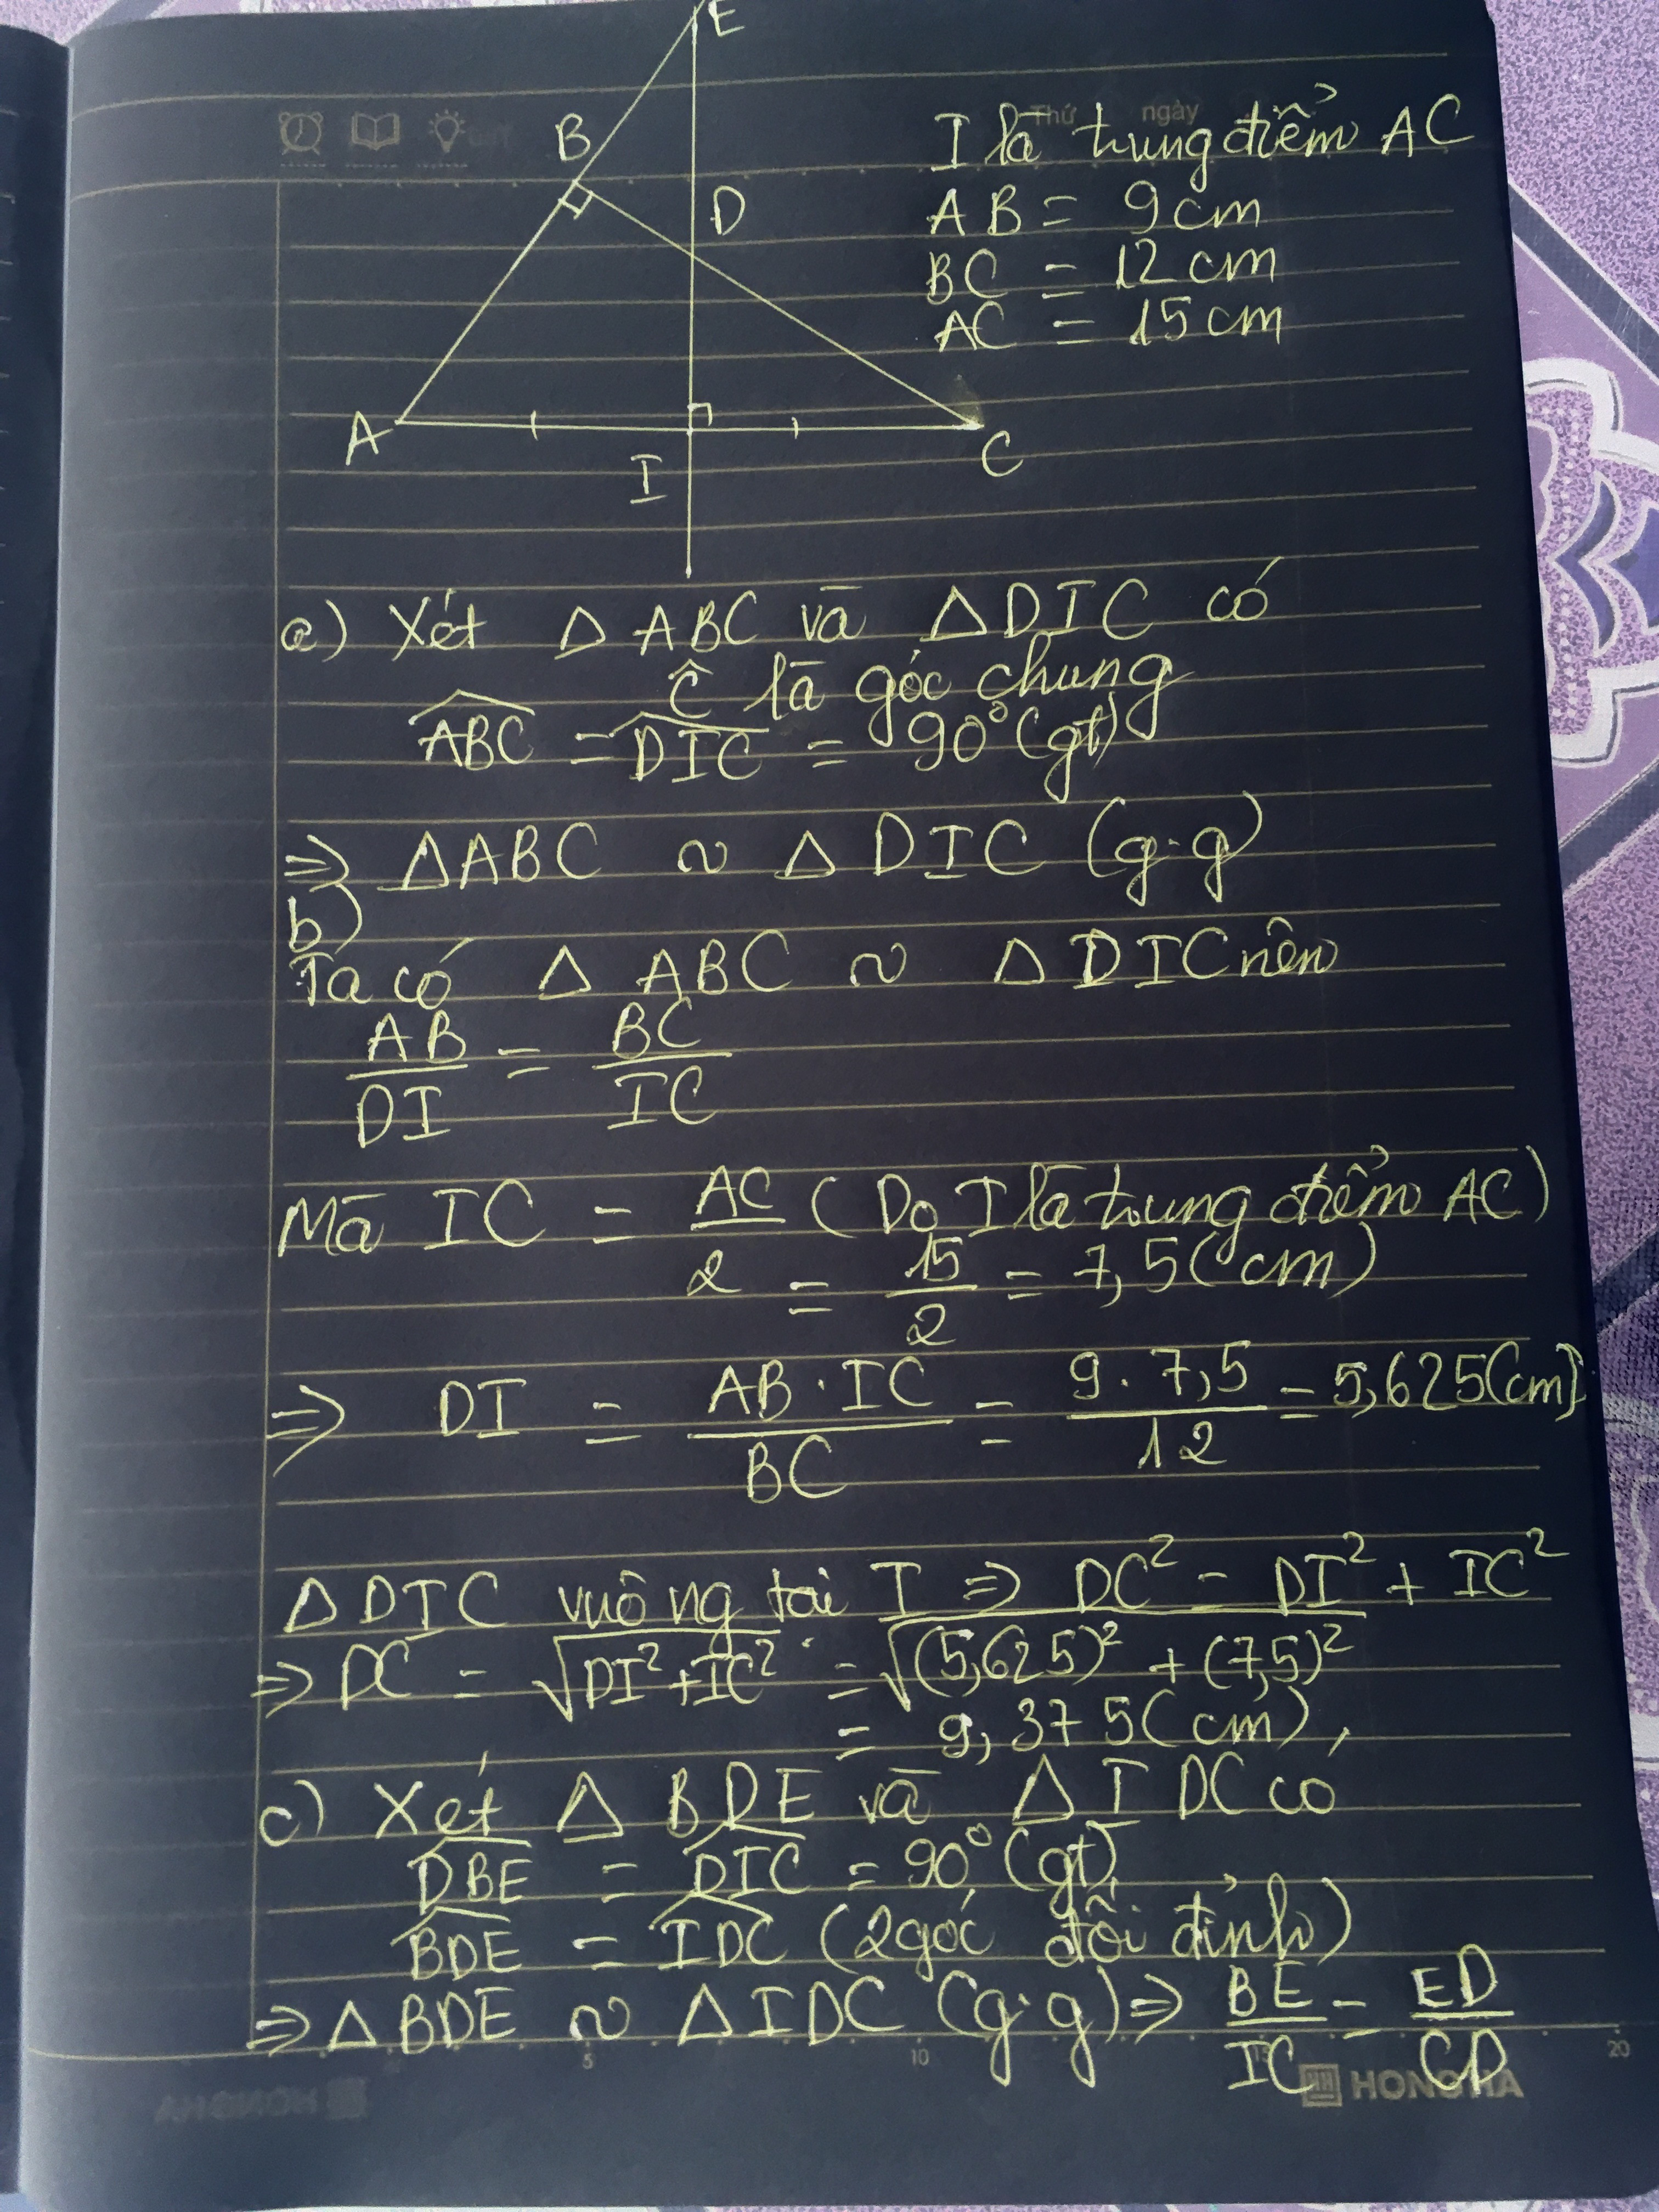 E
Thứ ngày
B
I là trung điểm AC
D
AB = 9cm
BC = 12cm
AC = 15cm
A
I
C
a) Xét △ABC và △DIC có
Ĉ là góc chung
ABC = DIC = 90° (gt)
⇒ △ABC ∾ △DIC (g.g)
b)
Ta có △ABC ∾ △DIC nên
AB/DI = BC/IC
Mà IC = AC/2 (Do I là trung điểm AC)
= 15/2 = 7,5(cm)
⇒ DI = AB.IC/BC = 9.7,5/12 = 5,625(cm)
△DIC vuông tại I ⇒ DC² = DI² + IC²
⇒ DC = √(DI²+IC²) = √((5,625)² + (7,5)²)
= 9,375(cm),
c) Xét △BDE và △IDC có
DBE = DIC = 90° (gt)
BDE = IDC (2 góc đối đỉnh)
⇒ △BDE ∾ △IDC (g.g) ⇒ BE/IC = ED/CD
5 10 15 20
HONG HA